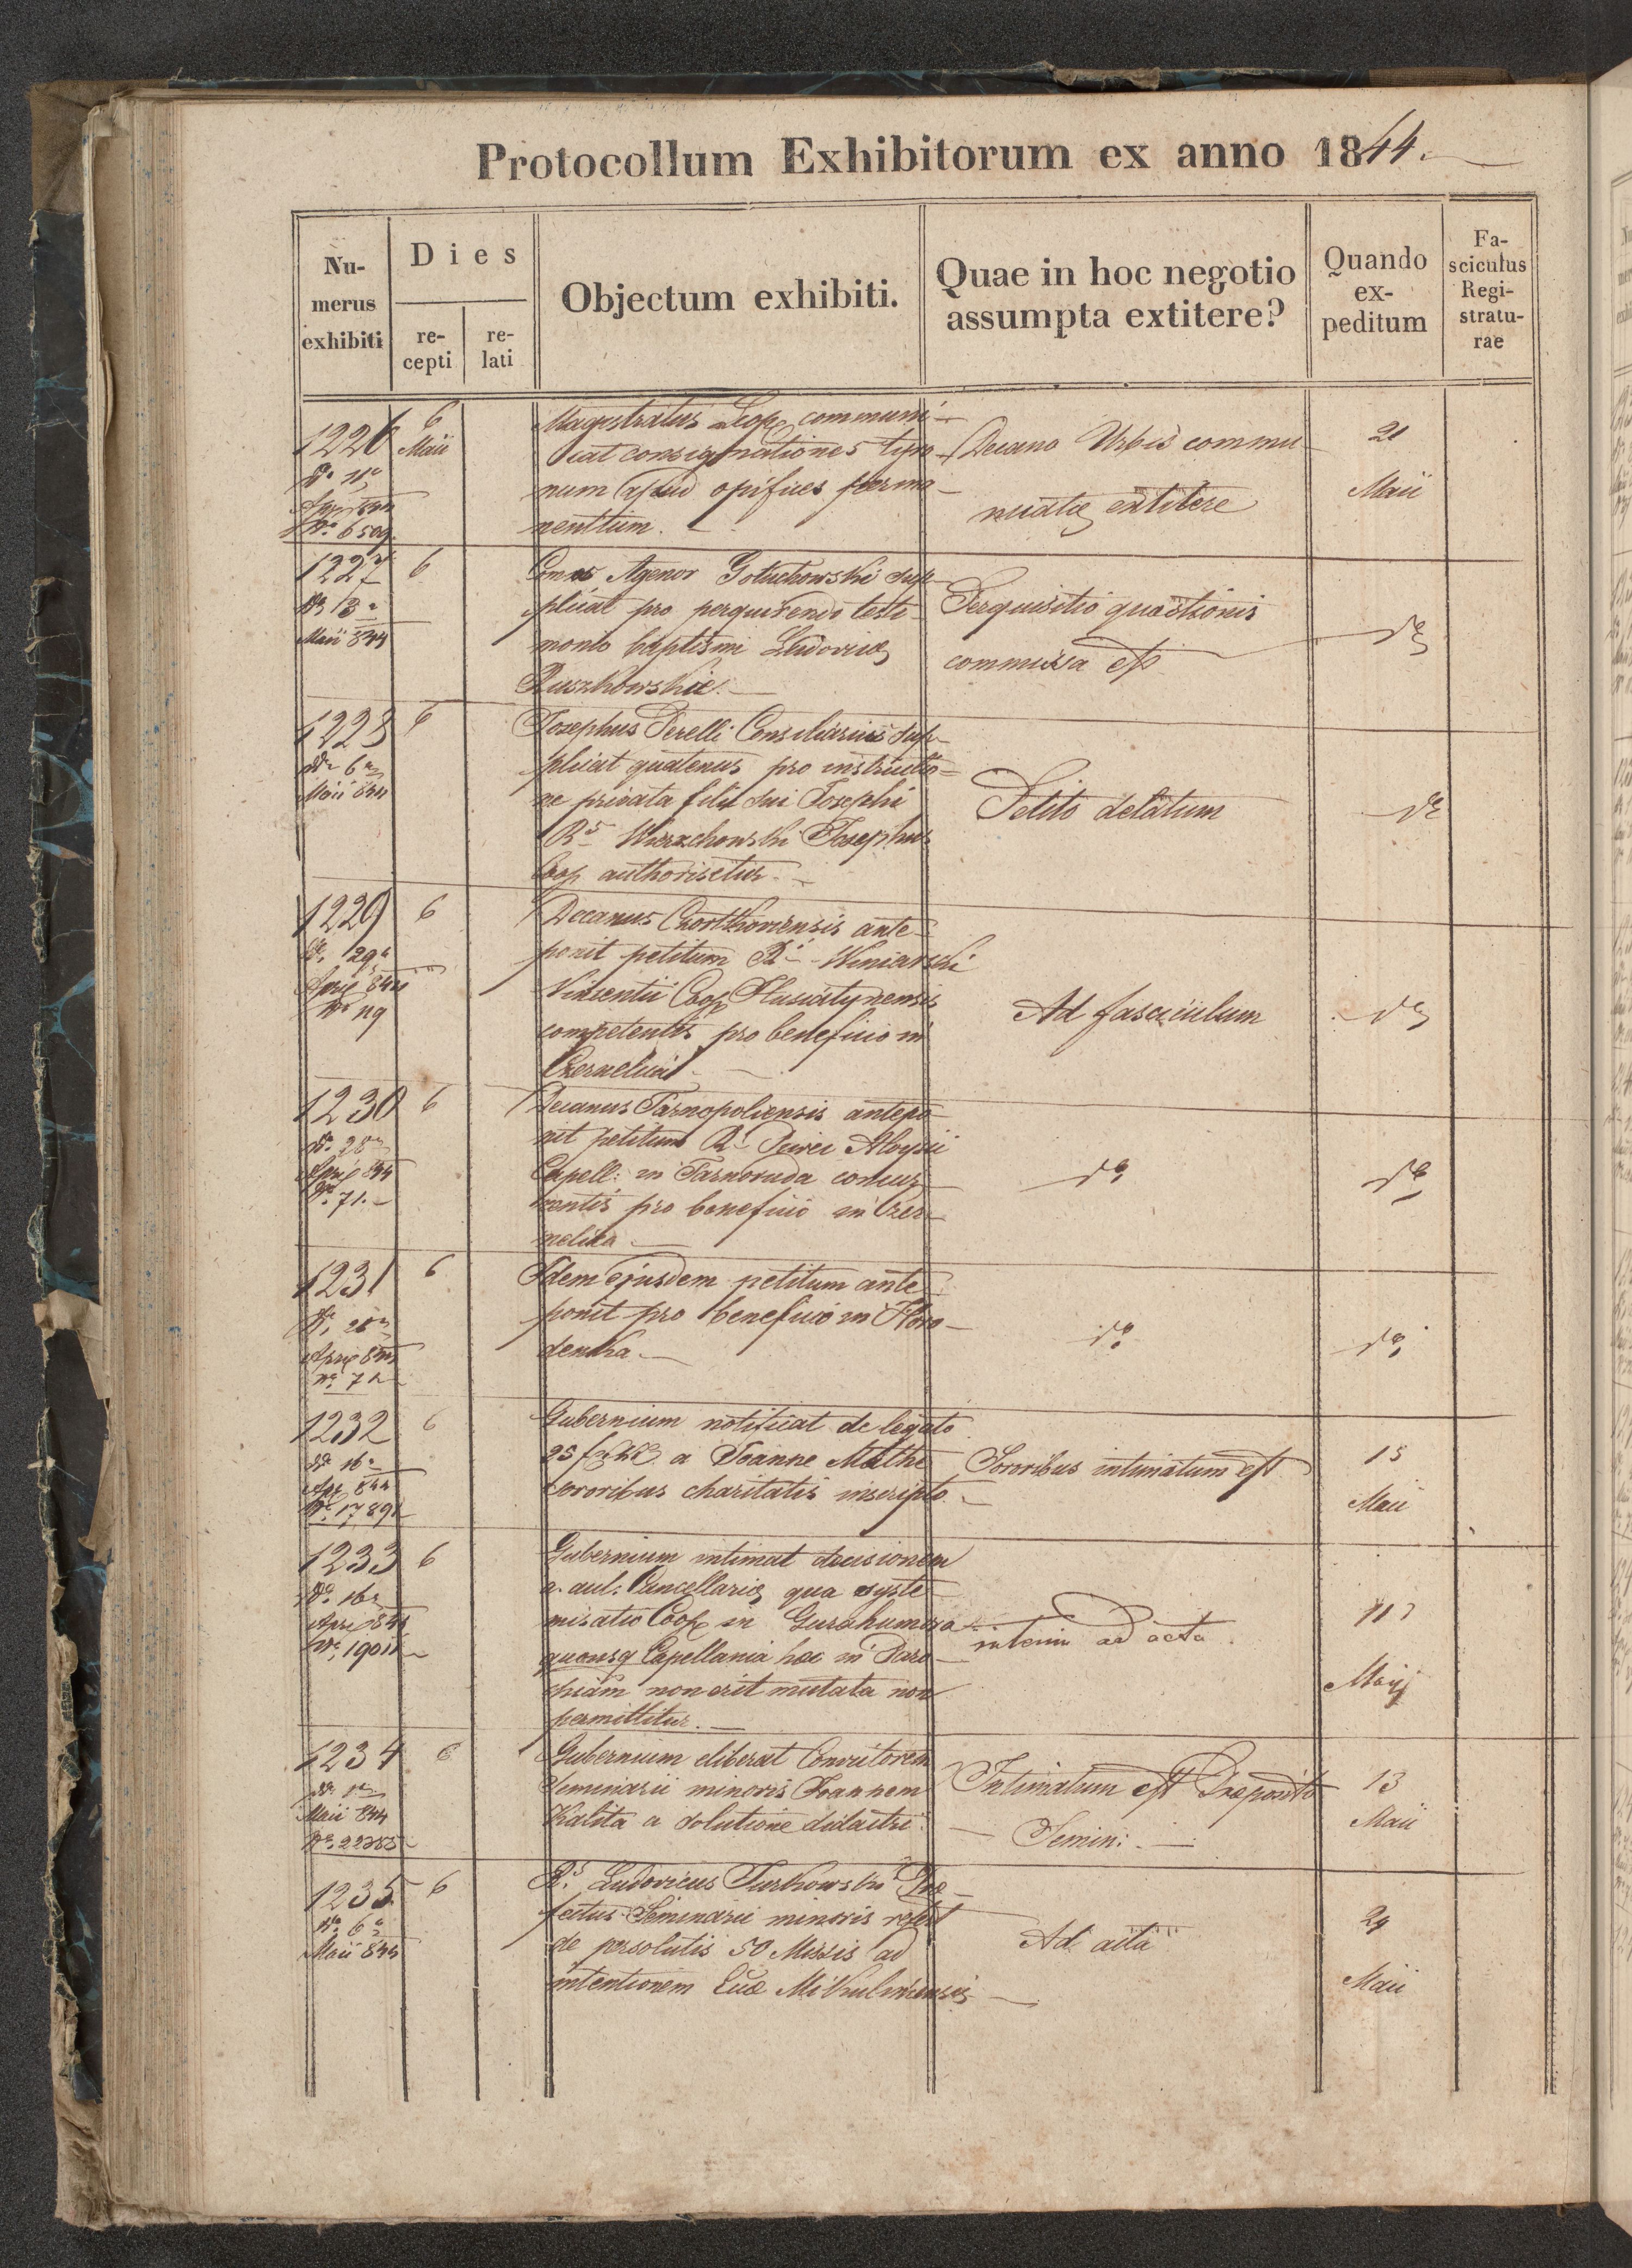 Protocollum Exhibitorum ex anno 1844.
Nu-
merus
exhibiti
Dies
re-
cepti
re-
lati
Objectum exhibiti.
Quae in hoc negotio
assumpta extitere?
Quando
ex-
peditum
Fa-
sciculus
Regi-
stratu-
rae
1226 6 Maii
Nº 6509
Magistratus Leop. communi-
cat consignationes tyro-
num apud opifices perma-
nentium.
Decano Urbis commu-
nicatæ extitere
21
Maii
1227 6
Maii 844
Comes Agenor Gołuchowski sup-
plicat pro perquirendo testi-
monio baptismi Ludovicæ
Ruszkowskie.
Perquisitio quæstionis
commissa est
dº
1228 6
dº 6a
Maii 844
Josephus Perelli Consiliarius sup-
plicat quatenus pro instructio-
ne privata filii sui Josephi
Rs Wierzchowski Josephus
Coop authorisetur.
Petito delatum
dº
1229 6
dº 29a
April 844
Nº 119
Decanus Czortkoviensis ante-
ponit petitum Ri Winiarski
Vincentii Coop Husiatynensis
competentis pro beneficio in
Czernelica
Ad fasciculum
dº
1230 6
April 844
Nº 71.
Decanus Tarnopoliensis antepo-
nit petitum Ri Aloysii
Capell: in Tarnoruda concur-
rentis pro beneficio in Czer-
nelica
dº
dº
1231 6
April 844
Nº 72
Idem ejusdem petitum ante
ponit pro beneficio in Horo-
denka.
dº
dº
1232 6
dº 16a
Apr 844
Nº 17891
Gubernium notificat de legato
25 a Joanne Mathe
sororibus charitatis inscripto.
Sororibus intimatum est
15
Maii
1233 6
dº 16a
April 844
Gubernium intimat decisionem
a. aul: Cancellariæ qua syste-
misatio Coop in Gurahumora
quousq Capellania hæc in Paro-
chiam non erit mutata non
permittitur.
interim ad acta.
Maij
1234 6
dº 1a
Maii 844
Gubernium eliberat Convictorem
Seminarii minoris Joannem
Kalita a solutione didactri.
Intimatum est Præposito
Semin:
13
Maii
1235 6
dº 6a
Maii 844
Rs. Ludovicus Turkowski Præ-
fectus Seminarii minoris refert
de persolutis 50 Missis ad
intentionem Mikulin̄censis
Ad acta
Maii